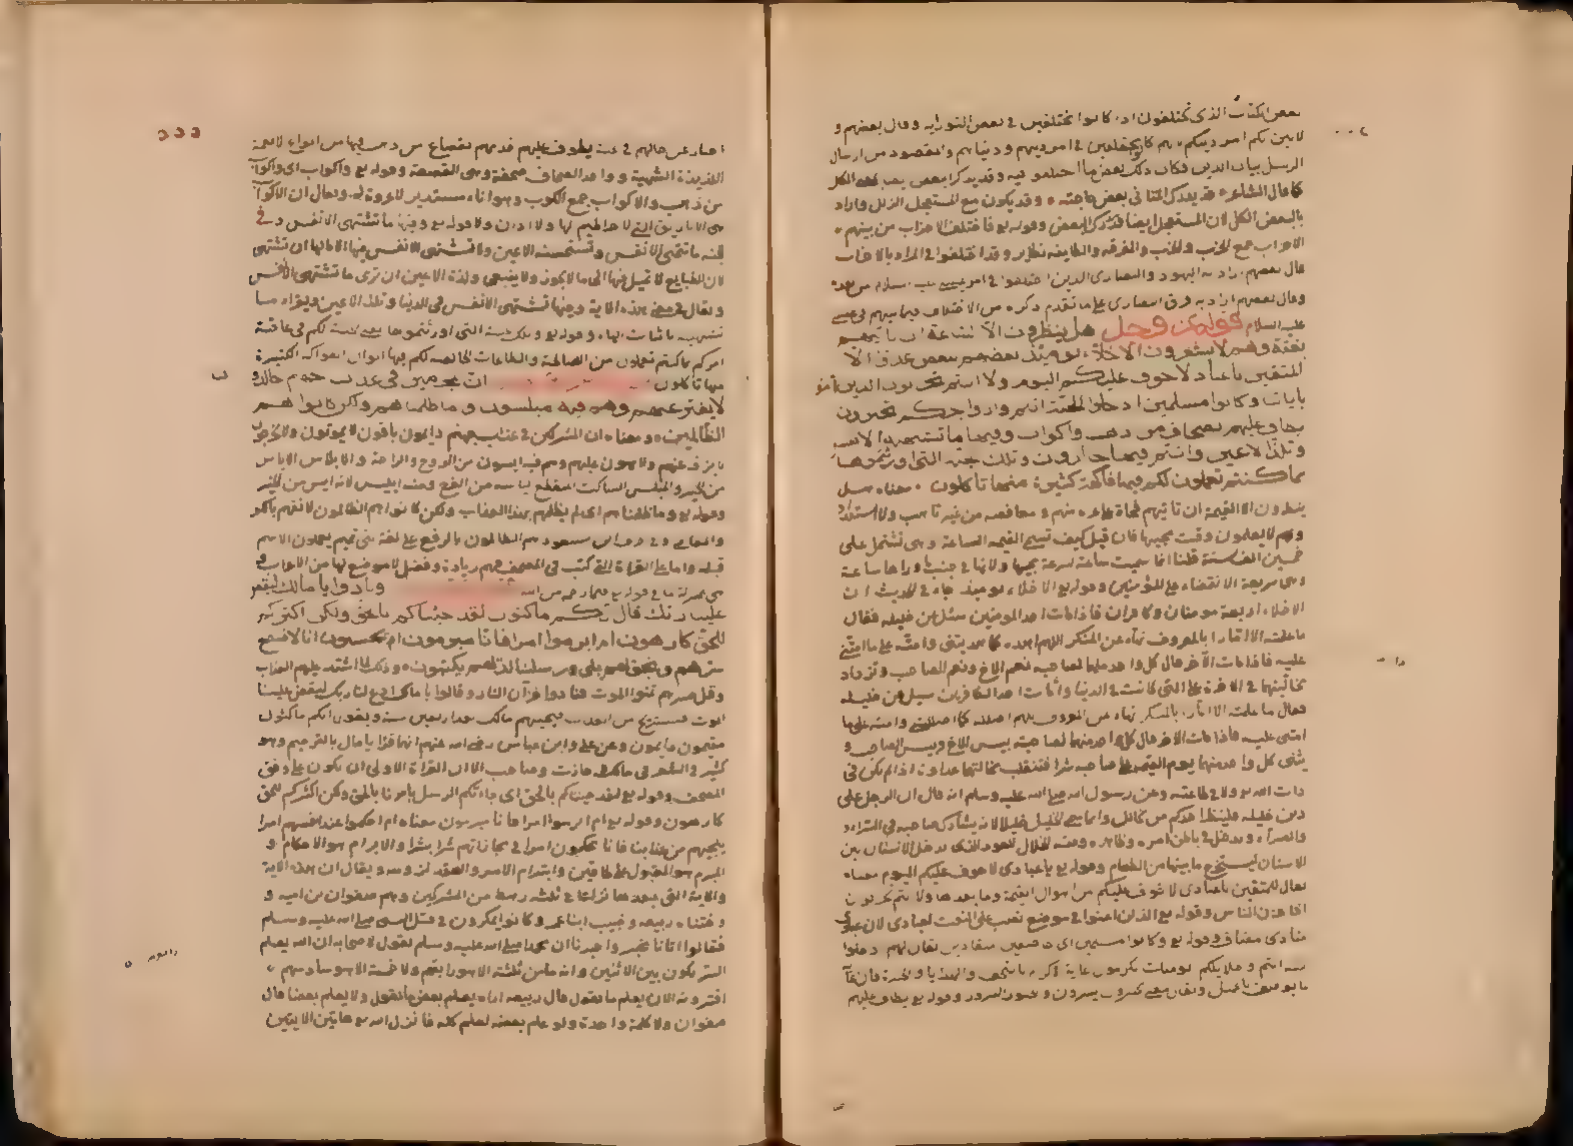 بعض الكتاب الذي تختلفون اد كانوا مختلفين في بعض التوراية وقال بعضهم و
لابين لكم امر دينكم هم كانوا يختلفون في امر دينهم ودنياهم والمقصود من ارسال
الرسل بيان الدين فكان ذلك بعض ما اختلفوا فيه وقد يذكر بعض الكل
كما قال الشاعر قد يدرك المتاني بعض حاجته وقد يكون مع المستعجل الزلل واراد
بالبعض الكل لان المستعجل ايضا قد يدرك البعض وقوله تع فاختلف الاحزاب من بينهم
الاحزاب جمع الحزب والحزب والفرقة والطايفة نظاير وقد اختلفوا في المراد بالاحزاب
قال بعضهم اراد به اليهود والنصارى الذين اختلفوا في امر عيسى عليه السلام من بعده
وقال بعضهم اراد به فرق النصارى على ما تقدم ذكره من الاختلاف فيما بينهم في عيسى
عليه السلام قوله عز وجل هل ينظرون الا الساعة ان تاتيهم
بغتة وهم لا يشعرون الاخلاء يومئذ بعضهم لبعض عدو الا
المتقين يا عباد لا خوف عليكم اليوم ولا انتم تحزنون الذين امنوا
باياتنا وكانوا مسلمين ادخلوا الجنة انتم وازواجكم تحبرون
يطاف عليهم بصحاف من ذهب واكواب وفيها ما تشتهيه الانفس
وتلذ الاعين وانتم فيها خالدون وتلك جنة التي اورثتموها
بما كنتم تعملون لكم فيها فاكهة كثيرة منها تاكلون معناه هل
ينظرون الا القيمة ان تاتيهم فجاءة منهم ومعافصة من غير تاهب ولا استعداد
وهم لا يعلمون وقت مجيها فان قيل كيف تسمي القيمة الساعة وهي تشتمل على
خمسين الف سنة قلنا انما سميت ساعة لسرعة مجيها ولانها في جنب ما وراها ساعة
وهي سريعة الانقضاء على المؤمنين وقوله تع الاخلاء يومئذ جاء في الحديث ان
الاخلاء اربعة مومنان وكافران فاذا مات احد المومنين سئل عن خليله فقال
ما علمته الا امارا بالمعروف نهاء عن المنكر اللهم اهده كما هديتني وامته على ما امتني
عليه فاذا مات الآخر قال كل واحد منهما لصاحبه نعم الاخ ونعم الصاحب وتزداد
مخالتهما في الاخرة على التي كانت في الدنيا واذا مات احد الكافرين سيل عن خليله
فقال ما علمته الا امارا بالمنكر نهاء عن المعروف اللهم اضلله كما اضللتني وامته على ما
امتني عليه فاذا مات الآخر قال كل واحد منهما لصاحبه بيس الاخ وبيس الصاحب و
يثني كل واحد منهما يوم القيمة على صاحبه شرا فتنقلب مخالتهما عداوة اذا لم يكن في
ذات الله تع ولا في طاعته وعن رسول الله صلى الله عليه وسلم انه قال ان الرجل على
دين خليله فلينظر احدكم من يخالل وانما سمي الخليل خليلا لانه يشارك صاحبه في السراء
والضراء ويدخل في باطن امره وظاهره ومنه الخلال للعود الذي يدخل الاسنان بين
الاسنان ليستخرج ما بينها من الطعام وقوله تع يا عبادي لا خوف عليكم اليوم معناه
يقال للمتقين يا عبادي لا خوف عليكم من اهوال القيمة وما بعدها ولا انتم تحزنون
اذا حزن الناس وقوله تع الذين امنوا في موضع نصب على النعت لعبادي لان عبادي
منادى مضاف وقوله تع وكانوا مسلمين اي مخلصين منقادين يقال لهم ادخلوا
الجنة انتم وحلايلكم المومنات تكرمون غاية الاكرام بالتحف والهدايا
يطاف عليهم
د د د
اخبار عن حالهم في الجنة يطوف عليهم خدمهم بقصاع من ذهب فيها من انواع الاطعمة
اللذيذة الشهية وواحد الصحاف صحفة وهي القصعة وقوله تع واكواب اي واكواب
من ذهب والاكواب جمع الكوب وهو اناء مستدير لا عروة له ويقال ان الاكواب
هي الاباريق التي لا خراطيم لها ولا اذان وقوله تع وفيها ما تشتهي الانفس وفي
الجنة ما تتمنى الانفس وتستحسنه الاعين ولا تشتهي الانفس فيها الا مالها ان تشتهي
لان الطبايع لا تميل فيها الى ما لا يجوز ولا ينبغي ولذة الاعين ان ترى ما تشتهي الانفس
ويقال في معنى هذه الاية وفيها تشتهي الانفس في الدنيا وتلذ الاعين ويزاد ما
تشتهيه ما شات لها وقوله تع وتلك الجنة التي اورثتموها معناه كانت لكم في عاقبة
امركم بما كنتم تعملون من الصالحة والطاعات الخالصة لكم فيها الوان الفواكه الكثيرة
منها تاكلون ان المجرمين في عذاب جهنم خالدون
لا يفتر عنهم وهم فيه مبلسون وما ظلمناهم ولكن كانوا هم
الظالمين معناه ان المشركين في عذاب جهنم دايمون باقون لا يموتون ولا يخرجون
لا يرفه عنهم ولا يهون عليهم وهم فيه ايسون من الروح والراحة والابلاس الاياس
من الخير والمبلس الساكت المنقطع لياسه من الفرج ومنه ابليس لانه ايس من الخير
وقوله تع وما ظلمناهم اي لم نظلمهم بهذا العذاب ولكن كانوا هم الظالمون لانفسهم بالكفر
والمعاصي وفي قراءة ابن مسعود هم الظالمون بالرفع على لغة بني تميم يجعلون الاسم
قبله واما على القراءة التي كتب في المصحف فهم زيادة وفصل لا موضع لها من الاعراب
هي بمنزلة ما في قوله تع فبما رحمة من الله ونادوا يا مالك ليقض
علينا ربك قال انكم ماكثون لقد جئناكم بالحق ولكن اكثركم
للحق كارهون ام ابرموا امرا فانا مبرمون ام يحسبون انا لا نسمع
سرهم ونجواهم بلى ورسلنا لديهم يكتبون وذلك لما اشتد عليهم العذاب
وقل صبرهم تمنوا الموت فنادوا خزان النار وقالوا يا مالك ادع لنا ربك ليقض علينا
الموت فنستريح من العذاب فيجيبهم مالك بعد اربعين سنة ويقول انكم ماكثون
مقيمون دايمون وعن علي وابن عباس رضي الله عنهم انهما قرا يا مال بالترخيم وهو
كثير في الشعر في مالك وحارث وصاحب الا ان القراءة الاولى ان يكون على وفق
المصحف وقوله تع لقد جيناكم بالحق اي جاءتكم الرسل بامرنا بالحق ولكن اكثركم للحق
كارهون وقوله تع ام ابرموا امرا فانا مبرمون معناه ام احكموا عند انفسهم امرا
ينجيهم من عذابنا فانا محكمون امرا في مجازاتهم شرا بشر والابرام هو الاحكام و
المبرم هو المفتول على طاقتين وابتدام الامر والعقد لزومه ويقال ان هذه الاية
والاية التي بعدها نزلتا في ثلثة رهط من المشركين وهم صفوان بن امية و
وختناه ربيعة وحبيب ابنا عمرو كانوا يمكرون في قتل النبي صلى الله عليه وسلم
فقالوا اتانا مخبر واخبرنا ان محمدا صلى الله عليه وسلم يقول لاصحابه ان الله يعلم
السر يكون بين الاثنين وانه ما من ثلثة الا هو رابعهم ولا خمسة الا هو سادسهم
افترونه الان يعلم ما نقول قال ربيعة اراه يعلم بعض ما نقول ولا يعلم بعضا قال
صفوان ولا كلمة واحدة ولو علم بعضه لعلم كله فانزل الله تع هاتين الايتين